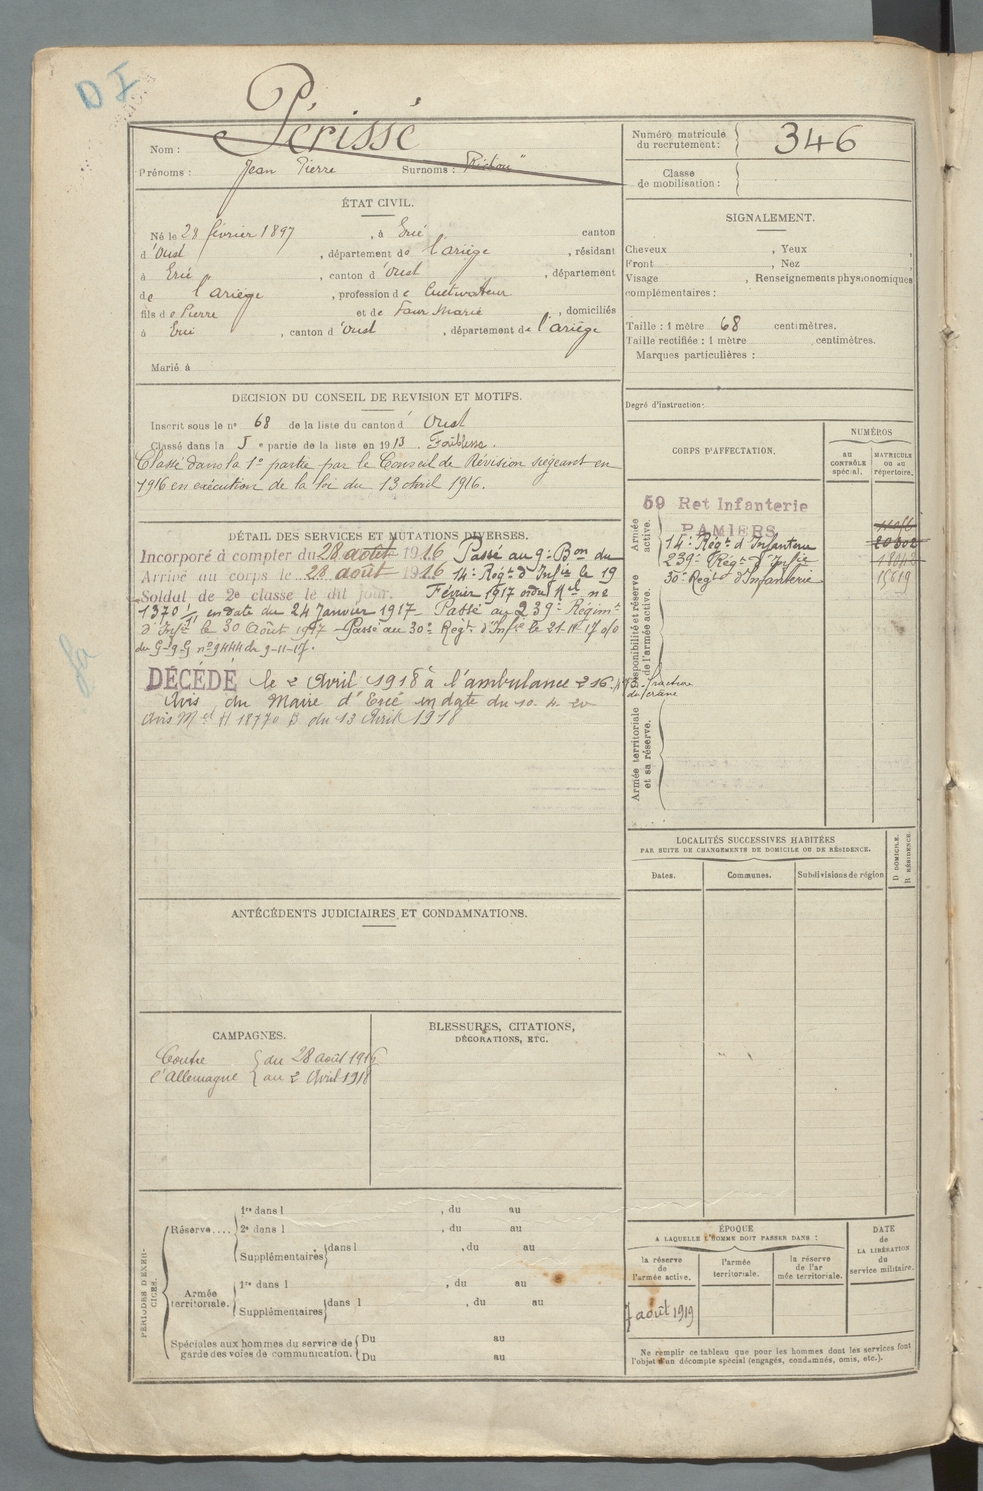 D I
Périssé
Nom :
Prénoms : Jean Pierre Surnoms :
Numéro matricule du recrutement : 346
Classe de mobilisation :
ÉTAT CIVIL.
Né le 28 février 1897, à Ercé canton
d'Oust, département de l'ariège, résidant
à Ercé, canton d'Oust, département
de l'ariège, profession de Cultivateur
fils de Pierre et de Faur Marie, domiciliés
à Ercé, canton d'Oust, département de l'ariège
Marié à
SIGNALEMENT.
Cheveux , Yeux ,
Front , Nez ,
Visage , Renseignements physionomiques
complémentaires :
Taille : 1 mètre 68 centimètres.
Taille rectifiée : 1 mètre centimètres.
Marques particulières :
Degré d'instruction :
DÉCISION DU CONSEIL DE REVISION ET MOTIFS.
Inscrit sous le n° 68 de la liste du canton d'Oust
Classé dans la 5e partie de la liste en 1915. Faiblesse.
Classé dans la 1e partie par le Conseil de Révision siégeant en
1916 en exécution de la loi du 13 avril 1916.
CORPS D'AFFECTATION.
NUMÉROS
AU CONTRÔLE spécial.
MATRICULE OU AU répertoire.
Armée active.
59 Ret Infanterie
PAMIERS
14e Régt d'Infanterie 20802
239e Régt d'Infie
30e Regt d'Infanterie 15619
Disponibilité et réserve de l'armée active.
Armée territoriale et sa réserve.
DÉTAIL DES SERVICES ET MUTATIONS DIVERSES.
Incorporé à compter du 28 août 1916 Passé au 9e Bon du
Arrivé au corps le 28 août 1916 14e Régt d'Infie le 19
Soldat de 2e classe le dit jour. Février 1917 ordre Rel ne
1370/ en date du 24 Janvier 1917 - Passé au 239e Régimt
d'Infie le 30 Août 1917 - Passé au 30e Regt d'Infie le 21-11-17 o/o
du G-Q-G n° 9444 du 9-11-17.
DÉCÉDÉ le 2 Avril 1918 à l'ambulance 216. fracture du crâne
Avis du Maire d'Ercé en date du 10. 4.
Avis Mel H 18770 B du 13 Avril 1918
LOCALITÉS SUCCESSIVES HABITÉES
PAR SUITE DE CHANGEMENTS DE DOMICILE OU DE RÉSIDENCE.
Dates. Communes. Subdivisions de région
D DOMICILE.
R RÉSIDENCE.
ANTÉCÉDENTS JUDICIAIRES ET CONDAMNATIONS.
CAMPAGNES.
Contre l'Allemagne { du 28 août 1916
au 2 Avril 1918
BLESSURES, CITATIONS,
DÉCORATIONS, ETC.
PÉRIODES D'EXERCICES.
Réserve.... 1re dans l , du au
2e dans l , du au
Supplémentaires dans l , du au
Armée territoriale. 1re dans l , du au
Supplémentaires dans l , du au
Spéciales aux hommes du service de garde des voies de communication. Du au
Du au
ÉPOQUE
A LAQUELLE L'HOMME DOIT PASSER DANS :
la réserve de l'armée active.
l'armée territoriale.
la réserve de l'armée territoriale.
DATE de LA LIBÉRATION du service militaire.
7 août 1919
Ne remplir ce tableau que pour les hommes dont les services font
l'objet d'un décompte spécial (engagés, condamnés, omis, etc.).